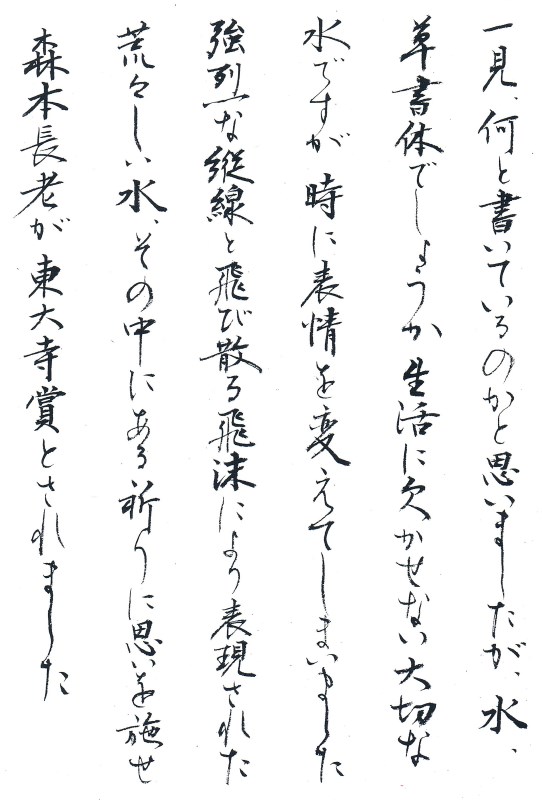 一見、何と書いているのかと思いましたが、水、
草書体でしょうか 生活に欠かせない大切な
水ですが 時に表情を変えてしまいました
強烈な縦線と飛び散る飛沫により表現された
荒々しい水、その中にある祈りに思いを施せ
森本長老が東大寺賞とされました